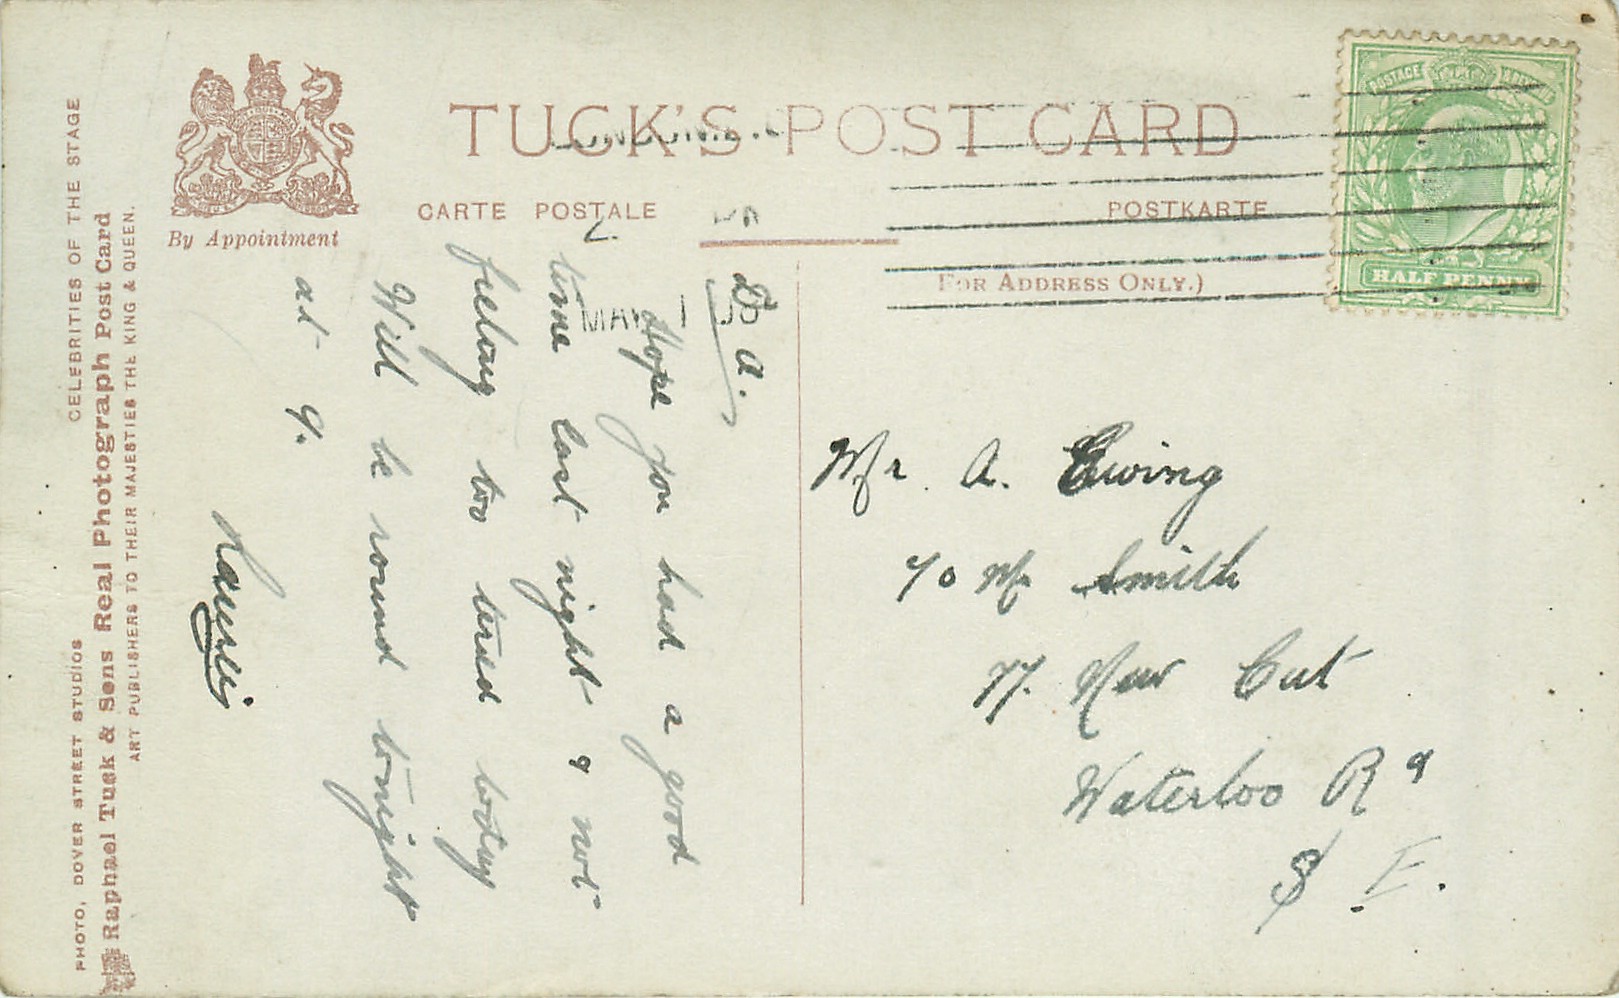 TUCK'S POST CARD
CARTE POSTALE
POSTKARTE
By Appointment
(FOR ADDRESS ONLY.)
POSTAGE
HALF PENNY
MAY 1
CELEBRITIES OF THE STAGE
PHOTO, DOVER STREET STUDIOS
Raphael Tuck & Sons Real Photograph Post Card
ART PUBLISHERS TO THEIR MAJESTIES THE KING & QUEEN.
D A.
Hope you had a good
time last night & not
feeling too tired today
Will be round tonight
at 9.
Mr. A. Ewing
c/o Mr Smith
77. New Cut
Waterloo Rd
S. E.